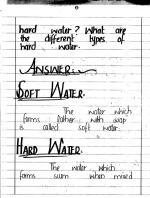 hard water? What are
the different types of
hard water.
ANSWER:-
SOFT WATER.
The water which
forms lather with soap
is called soft water.
HARD WATER.
The water which
forms scum when mixed